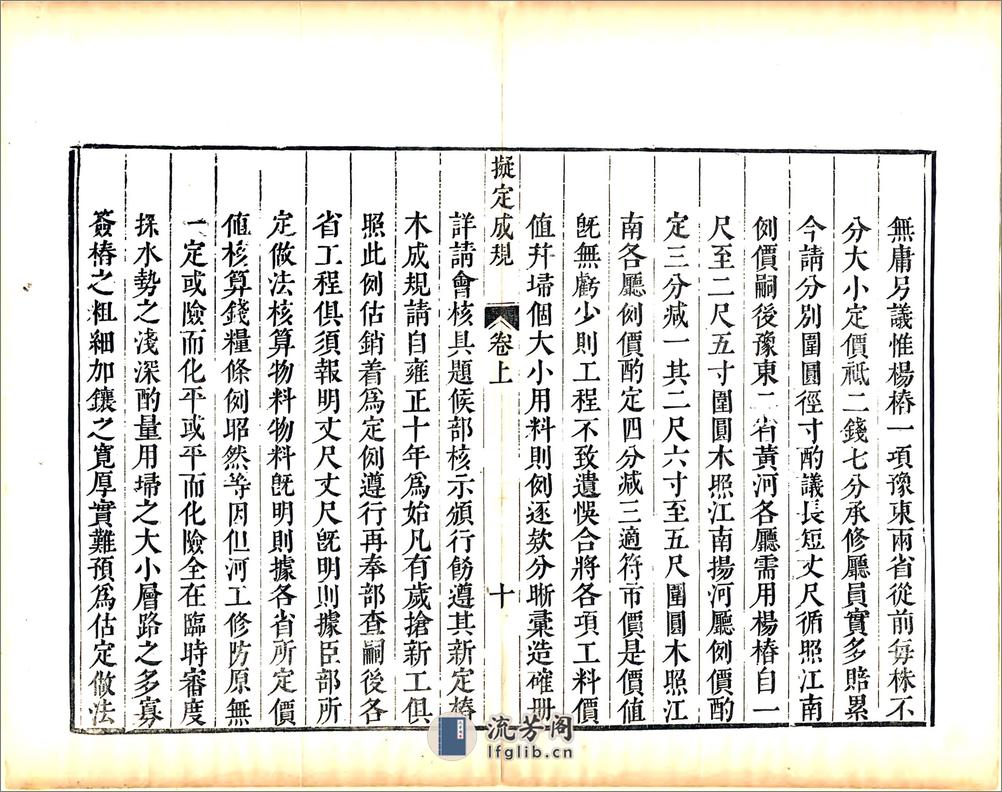 無庸另議惟楊樁一項豫東兩省從前每株不
分大小定價祗二錢七分承修廳員實多賠累
今請分別圍圓徑寸酌議長短丈尺循照江南
例價嗣後豫東二省黃河各廳需用楊樁自一
尺至二尺五寸圍圓木照江南揚河廳例價酌
定三分減一其二尺六寸至五尺圍圓木照江
南各廳例價酌定四分減三適符市價是價值
旣無虧少則工程不致遺悞合將各項工料價
值幷埽個大小用料則例逐欵分晰彙造確册
擬定成規 卷上 十
詳請會核具題候部核示頒行飭遵其新定樁
木成規請自雍正十年爲始凡有歲搶新工俱
照此例估銷着爲定例遵行再奉部查嗣後各
省工程俱須報明丈尺丈尺旣明則據臣部所
定做法核算物料物料旣明則據各省所定價
値核算錢糧條例昭然等因但河工修防原無
一定或險而化平或平而化險全在臨時審度
採水勢之淺深酌量用埽之大小層路之多寡
簽樁之粗細加鑲之寬厚實難預爲估定做法
流芳阁
lfglib.cn